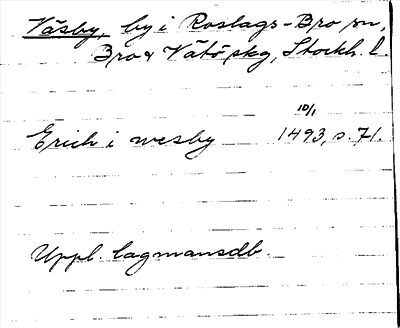 Väsby, by i Roslags-Bro sn,
Bro o Vätö skg, Stockh. l.
10/1
Erich i wesby 1493, s. 71.
Uppl. lagmansdb.